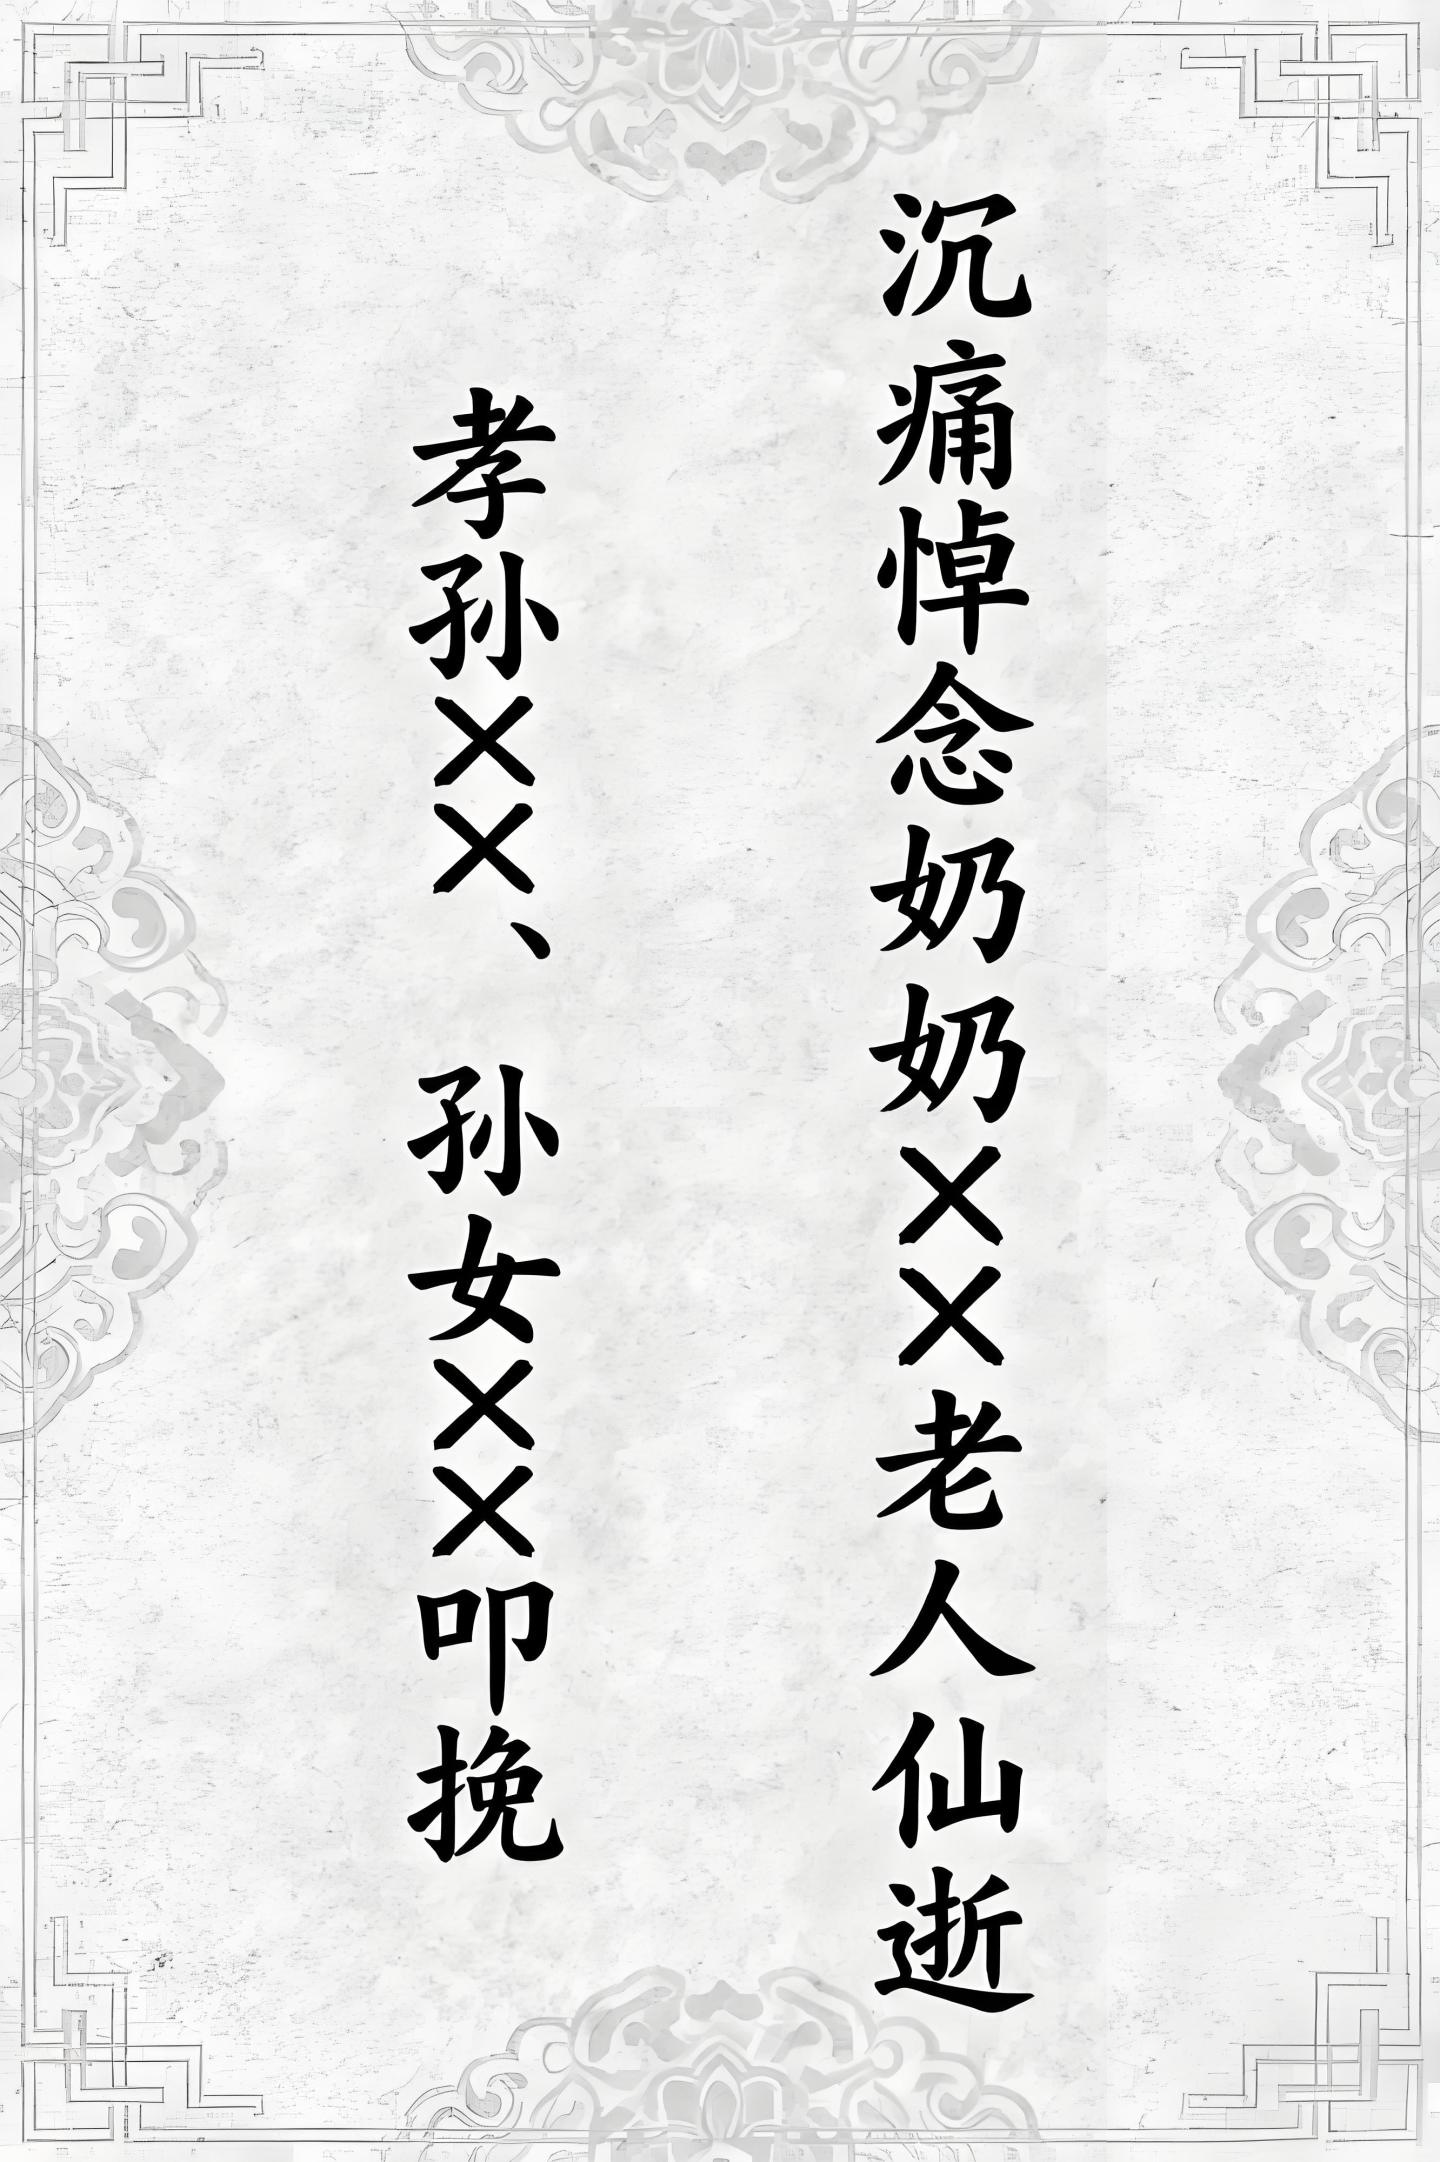 沉痛悼念奶奶××老人仙逝
孝孙××、孙女××叩挽